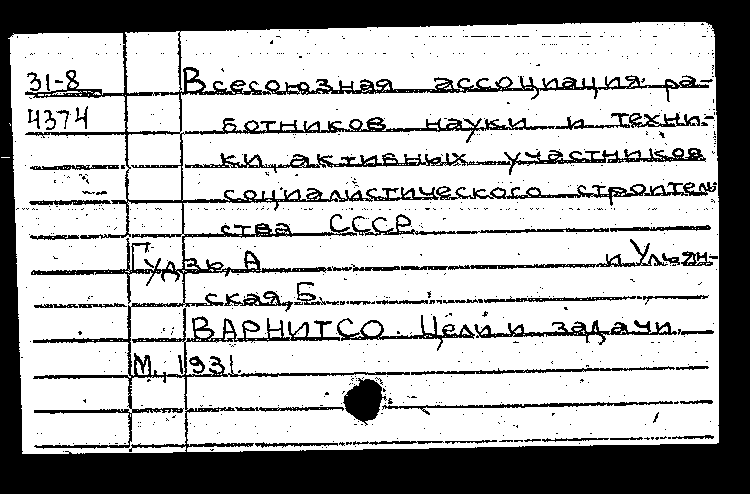 31-8 Всесоюзная ассоциация ра-
4374 ботников науки и техни-
ки, активных участников
социалистического строитель
ства СССР.
Гудзь, А и Ульян-
ская, Б.
ВАРНИТСО. Цели и задачи.
М., 1931.